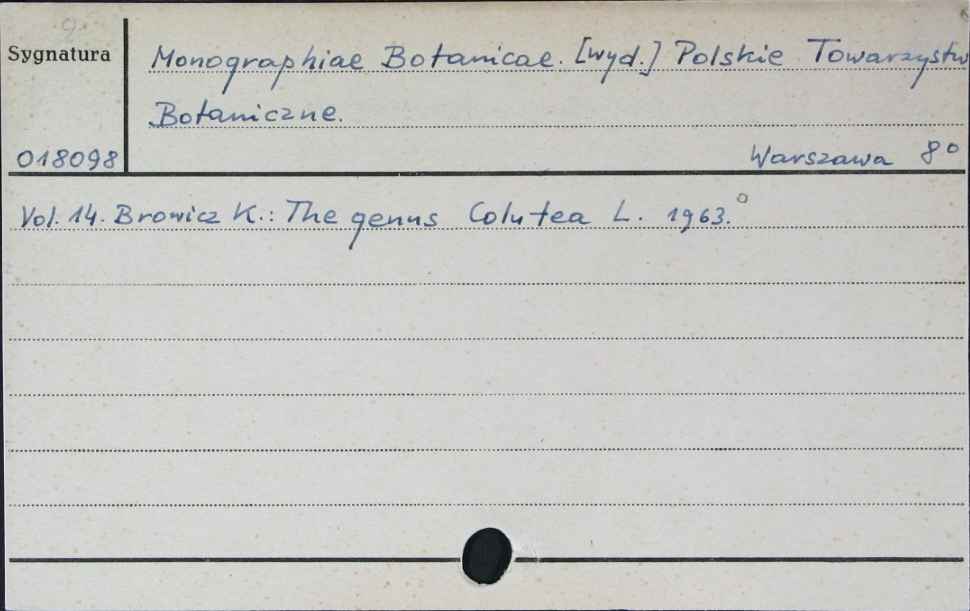 Sygnatura
Monographiae Botanicae. [wyd.] Polskie Towarzystw
Botaniczne.
018098
Warszawa 8°
Vol. 14. Browicz K.: The genus Colutea L. 1963.°